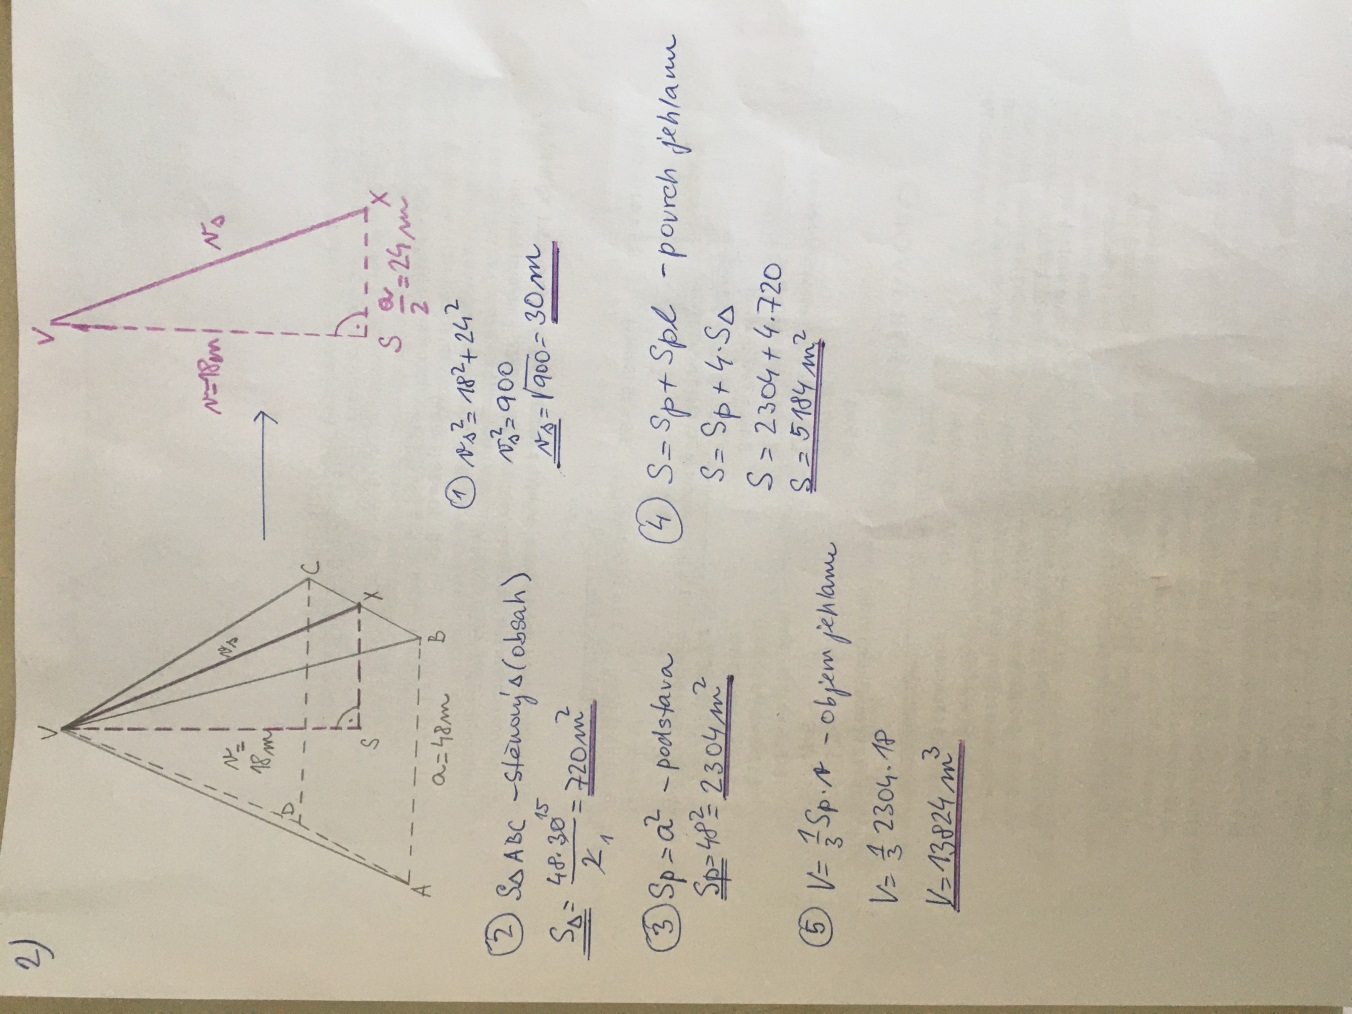 2)
V
v=
18m
vs
D
C
X
S
A
B
a=48m
V
v=18m
vs
S
X
a/2=24m
① vs²=18²+24²
vs²=900
vs=√900=30m
② S△ABC -stěnový △(obsah)
S△= 48.30 15 / 2 1 =720m²
③ Sp=a² -podstava
Sp=48²=2304m²
④ S=Sp+Spl -povrch jehlanu
S=Sp+4.S△
S=2304+4.720
S=5184m²
⑤ V=1/3 Sp.v -objem jehlanu
V=1/3 2304.18
V=13824m³